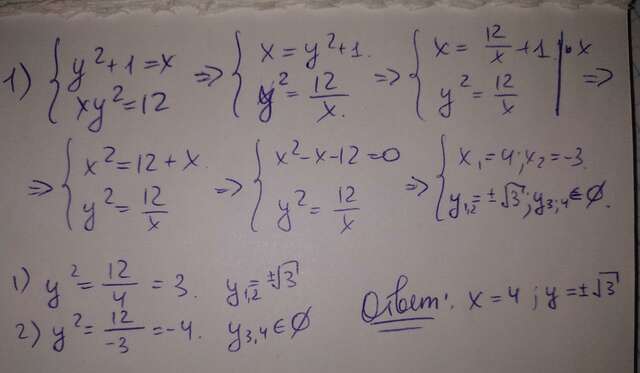 1) { y²+1=x ; xy²=12 => { x=y²+1. ; y²=12/x. => { x=12/x+1 |·x ; y²=12/x =>
=> { x²=12+x. ; y²=12/x => { x²-x-12=0 ; y²=12/x => { x₁=4; x₂=-3. ; y₁,₂=±√3; y₃;₄∈∅.
1) y²=12/4=3. y₁,₂=±√3
2) y²=12/-3=-4. y₃,₄∈∅
Ответ: x=4; y=±√3